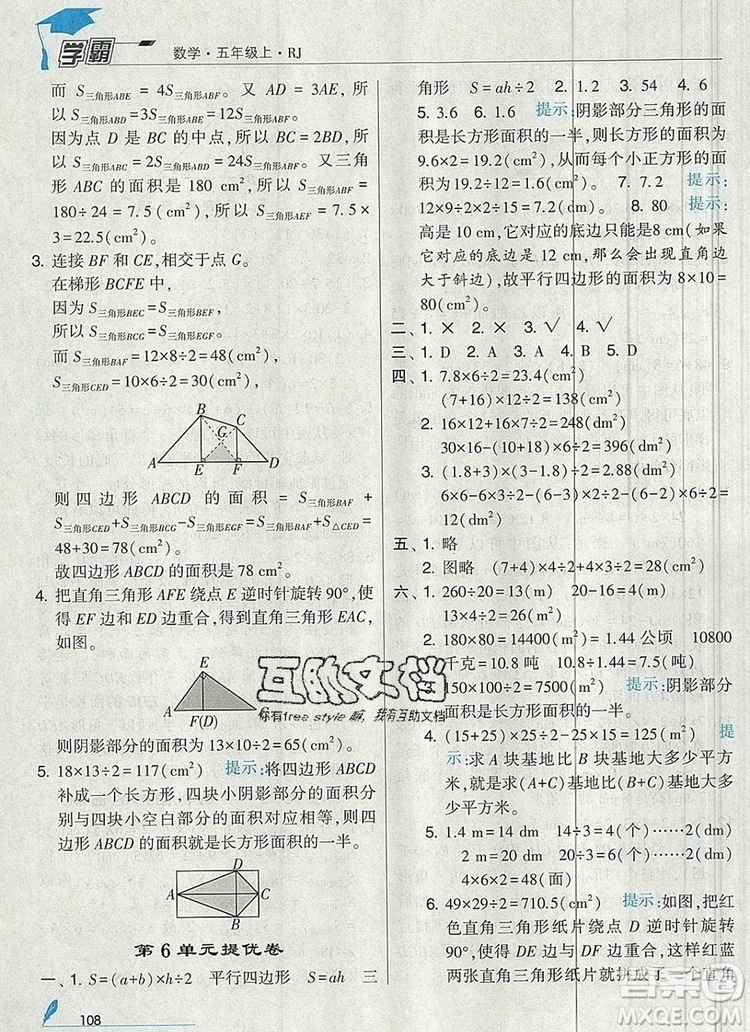 学霸
数学·五年级上·RJ
而 S三角形ABE = 4S三角形AEF。又 AD = 3AE，所
以 S三角形ABD=3S三角形ABE=12S三角形AEF。
因为点 D 是 BC 的中点，所以 BC=2BD，所
以 S三角形ABC=2S三角形ABD=24S三角形AEF。又三角
形 ABC 的面积是 180 cm²，所以 S三角形AEF =
180÷24 = 7.5(cm²)，所以 S三角形AEF = 7.5×
3=22.5(cm²)。
3. 连接 BF 和 CE，相交于点 G。
在梯形 BCFE 中，
因为 S三角形BEC=S三角形BEF，
所以 S三角形BCG=S三角形EGF。
而 S三角形BAF=12×8÷2=48(cm²)，
S三角形CED=10×6÷2=30(cm²)
B
C
G
A
E
F
D
则四边形 ABCD 的面积 = S三角形BAF +
S三角形CED+S三角形BCG-S三角形EGF=S三角形BAF+S△CED=
48+30=78(cm²)。
故四边形 ABCD 的面积是 78 cm²。
4. 把直角三角形 AFE 绕点 E 逆时针旋转 90°，使
得 EF 边和 ED 边重合，得到直角三角形 EAC，
如图。
E
A
F(D)
则阴影部分的面积为 13×10÷2=65(cm²)。
5. 18×13÷2=117(cm²) 提示:将四边形 ABCD
补成一个长方形，四块小阴影部分的面积分
别与四块小空白部分的面积对应相等，则四
边形 ABCD 的面积就是长方形面积的一半。
D
A
C
B
第 6 单元提优卷
一、1. S=(a+b)×h÷2 平行四边形 S=ah 三
108
角形 S=ah÷2 2. 1.2 3. 54 4. 6
5. 3.6 6. 1.6 提示:阴影部分三角形的面
积是长方形面积的一半，则长方形的面积为
9.6×2=19.2(cm²)，从而每个小正方形的面
积为 19.2÷12=1.6(cm²)。 7. 7.2 提示:
12×9÷2×2÷15=7.2(cm)。 8. 80 提示:
高是 10 cm，它对应的底边只能是8 cm(如果
它对应的底边是 12 cm，那么会出现直角边
大于斜边)，故平行四边形的面积为 8×10=
80(cm²)。
二、1. × 2. × 3. √ 4. √
三、1. D 2. A 3. A 4. B 5. D
四、1. 7.8×6÷2=23.4(cm²)
(7+16)×12÷2=138(cm²)
2. 16×12+16×7÷2=248(cm²)
30×16-(10+18)×10÷2=340(cm²)
3. (1.8+3)×(3-1.8)÷2=2.88(cm²)
6×6-6×3÷2-6×3÷2-3×3÷2=13.5(cm²)
五、1. 略
2. 图略 (7+4)×2÷2+4×3÷2=17(cm²)
六、1. 260÷20=13(m) 20-16=4(m)
13×4÷2=26(m²)
2. 180×80=14400(m²)=1.44 公顷 10800
千克=10.8 吨 10.8÷1.44=7.5(吨)
3. 150×100÷2=7500(m²) 提示:阴影部分
面积是长方形面积的一半。
4. (15+25)×25÷2-25×20÷2=250(m²) 提
示:求 A 块基地比 B 块基地大多少平方
米，就是求(A+C)基地比(B+C)基地大多
少平方米。
5. 1.4 m=14 dm 14÷3=4(个)……2(dm)
2 m=20 dm 20÷3=6(个)……2(dm)
4×6×2=48(面)
6. 49×29÷2=710.5(cm²) 提示:如图，把红
色直角三角形纸片绕点 D 逆时针旋转
90°，使得 DE 边与 DF 边重合，这样红蓝
两张直角三角形纸片就拼成了一个直角
互助文档
你有free style嘛，我有互助文档
MXQE.COM